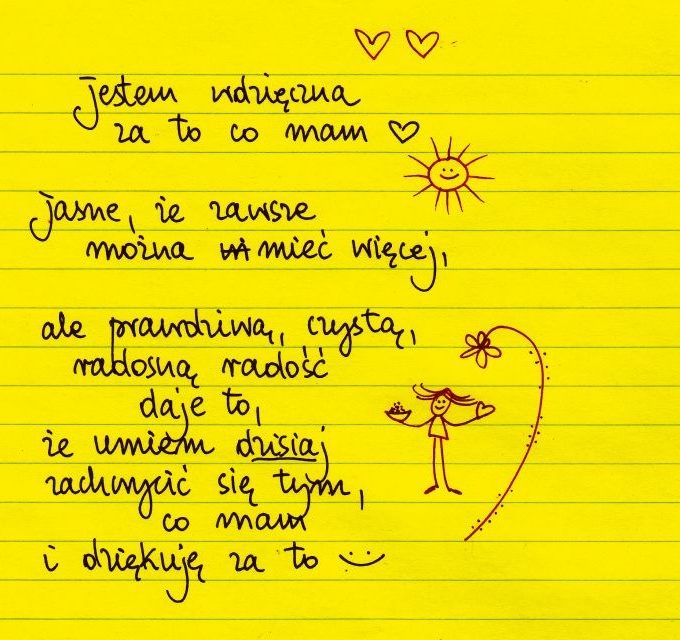 jestem wdzięczna
za to co mam ♡
jasne, że zawsze
można mieć więcej,
ale prawdziwą, czystą,
radosną radość
daje to,
że umiem dzisiaj
zachwycić się tym,
co mam
i dziękuję za to